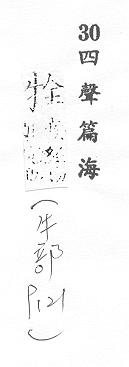 30四聲篇海
牷
(牛部 P.121)